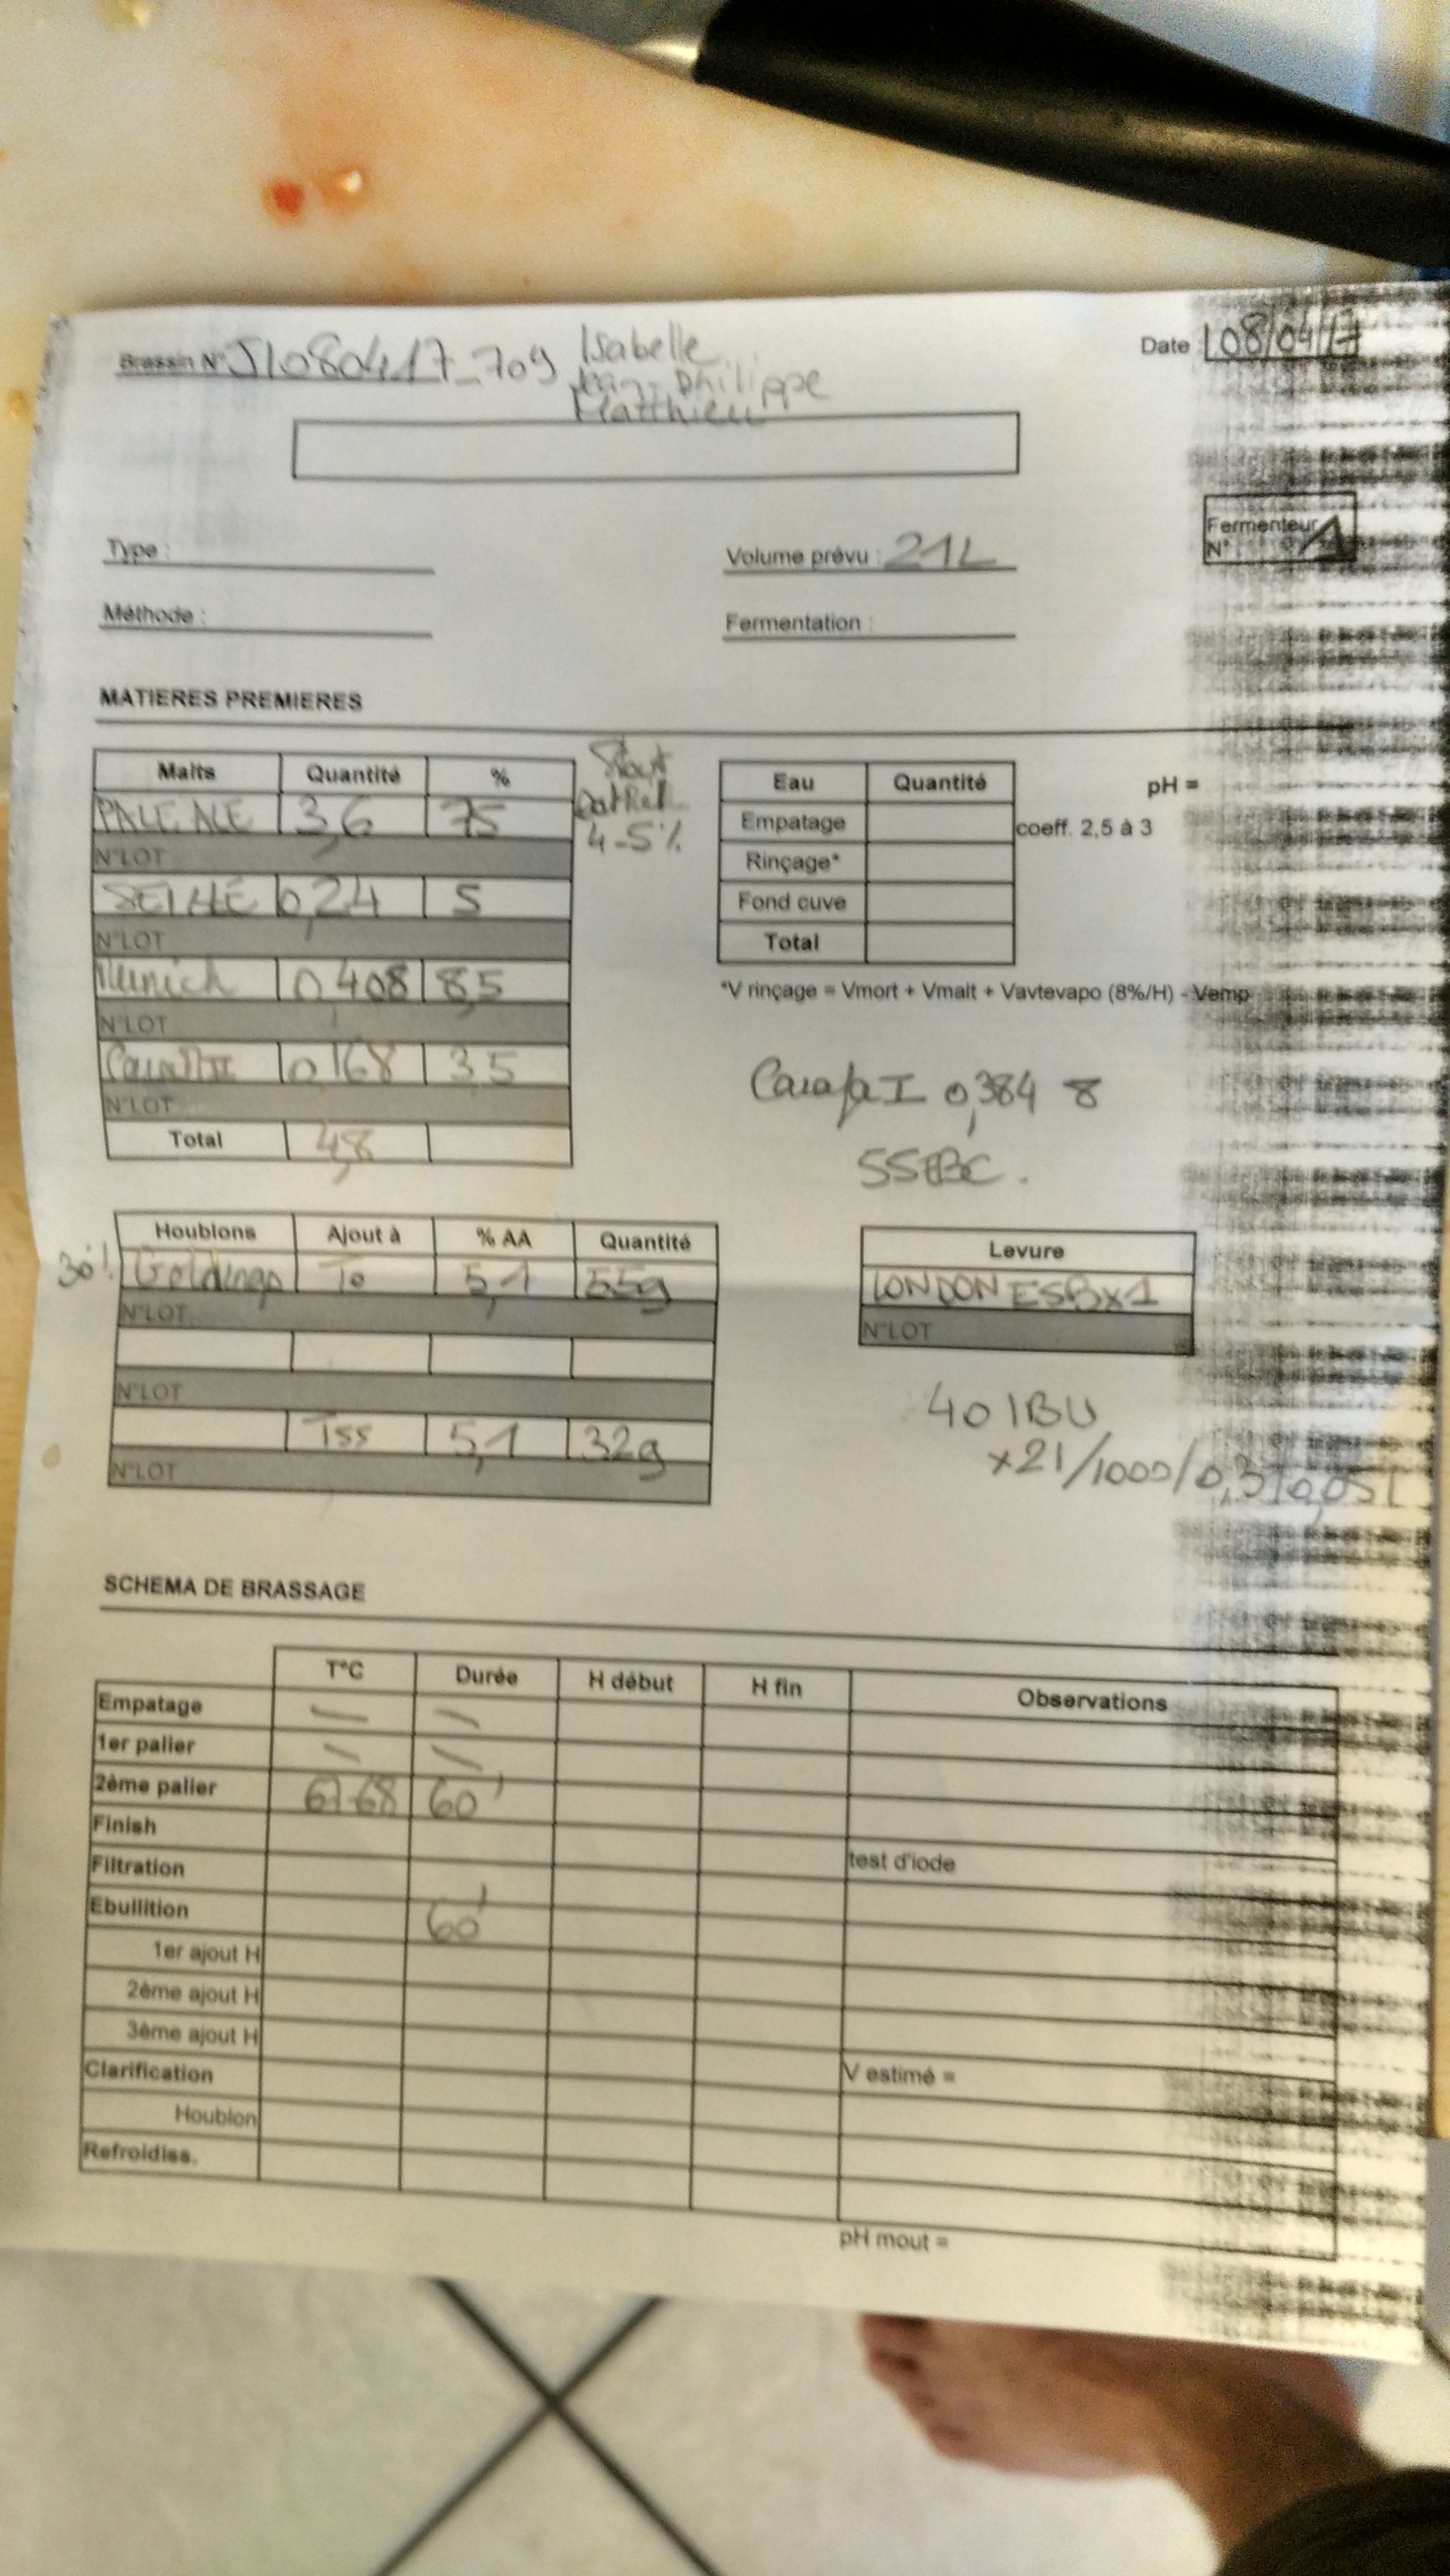 Brassin N° J1080417_709 Isabelle
Jean-Philippe
Matthieu
Date : 08/04/17
Fermenteur
N° 1
Type :
Volume prévu : 21L
Méthode :
Fermentation :
MATIERES PREMIERES
Malts Quantité %
PALE ALE 3,6 75
N°LOT
SEIGLE 0,24 5
N°LOT
Munich 0,408 8,5
N°LOT
0,168 3,5
N°LOT
Total 4,8
Stout
4-5%
Eau Quantité
pH =
Empatage
coeff. 2,5 à 3
Rinçage*
Fond cuve
Total
*V rinçage = Vmort + Vmalt + Vavtevapo (8%/H) - Vemp
Carafa I 0,384 8
55EBC.
Houblons Ajout à % AA Quantité
30% Goldings T0 5,1 55g
N°LOT
N°LOT
T55 5,1 32g
N°LOT
Levure
LONDON ESB x1
N°LOT
40 IBU
x21/1000/0,3/0,051
SCHEMA DE BRASSAGE
T°C Durée H début H fin Observations
Empatage
1er palier
2ème palier 67-68 60'
Finish
Filtration test d'iode
Ebullition 60'
1er ajout H
2ème ajout H
3ème ajout H
Clarification V estimé =
Houblon
Refroidiss.
pH mout =